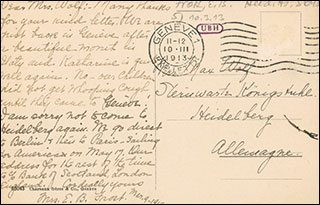 Dear Mrs. Wolf: Many thanks
for your kind letter. We are
just back in Geneva after
a beautiful month in
Italy and Katharine is quite
well again. No - our children
did not get whooping cough
until they came to Geneva.
I am sorry not to come to
Heidelberg again. We go direct
to Berlin & then to Paris - Sailing
for America on May
address for the rest of the time
Bank of Scotland, London
yours
Mrs. E. B. Frost.
5) 10.3.13
UBH
GENEVE 1
11-12
10·III
1913
Max Wolf
Sternwarte Königstuhl
Heidelberg
Allemagne.